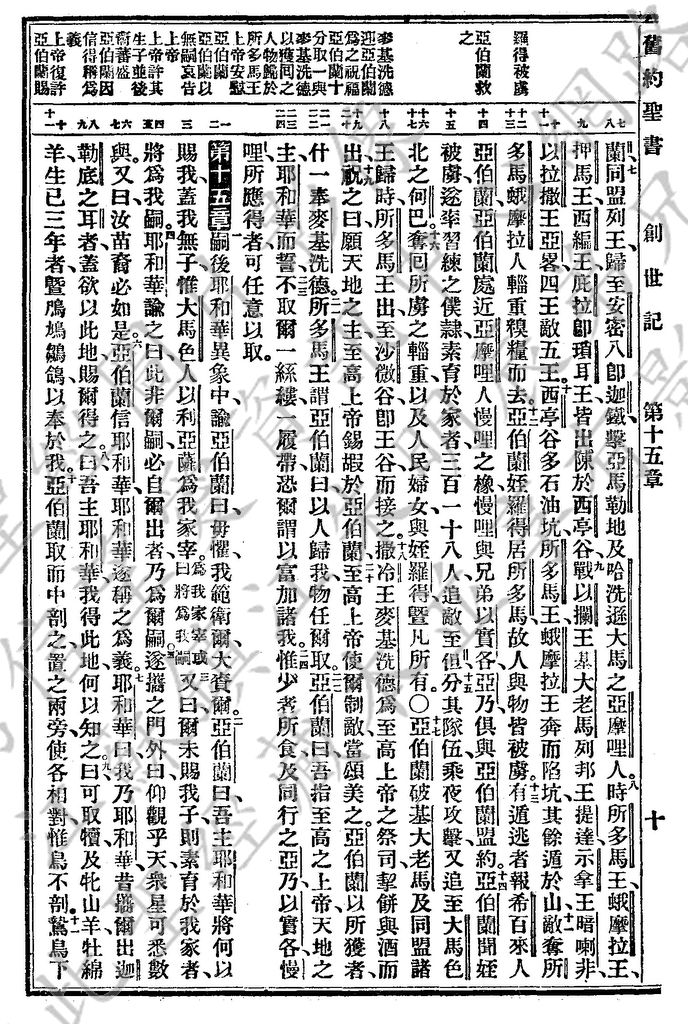 舊約聖書 創世記 第十五章 十
羅得被虜
亞伯蘭救之
麥基洗德迎亞伯蘭為之祝福
亞伯蘭十分取一與麥基洗德
以獲囘之人物歸於所多馬王
上帝安慰亞伯蘭
亞伯蘭以無嗣哀告上帝
上帝許其生子並後裔蕃盛
亞伯蘭因信得稱爲義
上帝復許亞伯蘭賜
蘭同盟列王、歸至安密八卽迦鐵、擊亞馬勒地、及哈洗遜大馬之亞摩哩人、時所多馬王、蛾摩拉王、
押馬王、西編王、庇拉卽瑣耳王、皆出陳於西亭谷、戰以攔王基大老馬、列邦王提達、示拿王暗喇非、
以拉撒王亞畧、四王敵五王、西亭谷多石油坑、所多馬王蛾摩拉王奔而陷坑、其餘遁於山、敵奪所
多馬蛾摩拉人輜重糗糧而去、亞伯蘭姪羅得居所多馬、故人與物皆被虜、有遁逃者報希百來人
亞伯蘭、亞伯蘭處近亞摩哩人慢哩之橡、慢哩與兄弟以實各亞乃俱與亞伯蘭盟約、亞伯蘭聞姪
被虜、遂率習練之僕隸素育於家者、三百一十八人、追敵至但、分其隊伍、乘夜攻擊、又追至大馬色
北之何巴、奪囘所虜之輜重、以及人民婦女、與姪羅得、暨凡所有、○亞伯蘭破基大老馬及同盟諸
王、歸時所多馬王出至沙微谷卽王谷而接之、撒冷王麥基洗德爲至高上帝之祭司、挈餅與酒而
出、祝之曰、願天地之主至高上帝、錫嘏於亞伯蘭、至高上帝使爾制敵、當頌美之、亞伯蘭以所獲者、
什一奉麥基洗德、所多馬王謂亞伯蘭曰、以人歸我、物任爾取、亞伯蘭曰、吾指至高之上帝、天地之
主耶和華而誓、不取爾一絲縷、一履帶、恐爾謂以富加諸我、惟少者所食、及同行之亞乃以實各慢
哩所應得者、可任意以取、
第十五章 嗣後耶和華異象中諭亞伯蘭曰、毋懼、我範衛爾、大賚爾、亞伯蘭曰、吾主耶和華將何以
賜我、蓋我無子、惟大馬色人以利亞薩爲我家宰、爲我家宰或曰將爲我嗣又曰、爾未賜我子、則素育於我家者
將爲我嗣、耶和華諭之曰、此非爾嗣、必自爾出者乃爲爾嗣、遂攜之門外曰、仰觀乎天、衆星可悉數
與、又曰、汝苗裔必如是、亞伯蘭信耶和華、耶和華遂稱之爲義、耶和華曰、我乃耶和華、昔攜爾出迦
勒底之耳者、蓋欲以此地賜爾得之、曰、吾主耶和華、我得此地、何以知之、曰、可取犢及牝山羊牡綿
羊、生已三年者、暨鳲鳩鶵鴿、以奉於我、亞伯蘭取而中剖之、置之兩旁、使各相對、惟鳥不剖、鷙鳥下